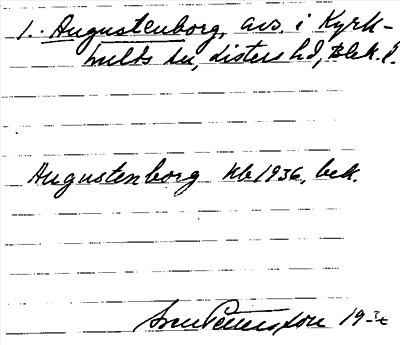 1. Augustenborg, avs. i Kyrk-
hults sn, Listers hd, Blek. l.
Augustenborg kb 1936, bek.
Sven Pettersson 19